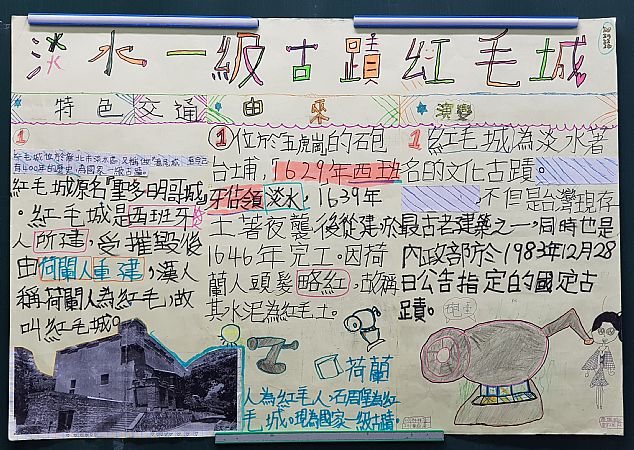 淡水一級古蹟紅毛城
特色 交通
由來
演變
1
紅毛城原名『聖多明哥城』
。紅毛城是西班牙
人所建,受摧毀後
由荷蘭人重建,漢人
稱荷蘭人為紅毛,故
叫紅毛城。
1位於五虎崗的石包
台埔,「1629年西班
牙佔領淡水,1639年
土著夜襲後從建於
1646年完工。因荷
蘭人頭髮略紅,故稱
其水泥為紅毛土。
荷蘭
人為紅毛人,石
毛城。現為國家一級古蹟。
1紅毛城為淡水著
名的文化古蹟。
不但是台灣現存
最古老建築之一,同時也是
內政部於1983年12月28
日公告指定的國定古
蹟。